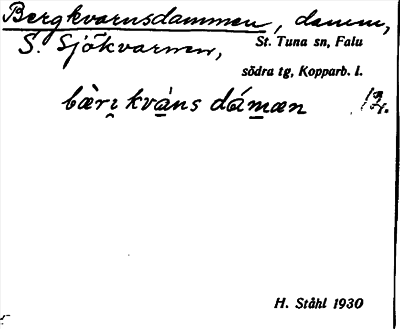 Bergkvarnsdammen, damm,
S. Sjökvarnen,
St. Tuna sn, Falu
södra tg, Kopparb. l.
bὰrı̯ kvὰ̱ns dám̱æn 12.
H. Ståhl 1930